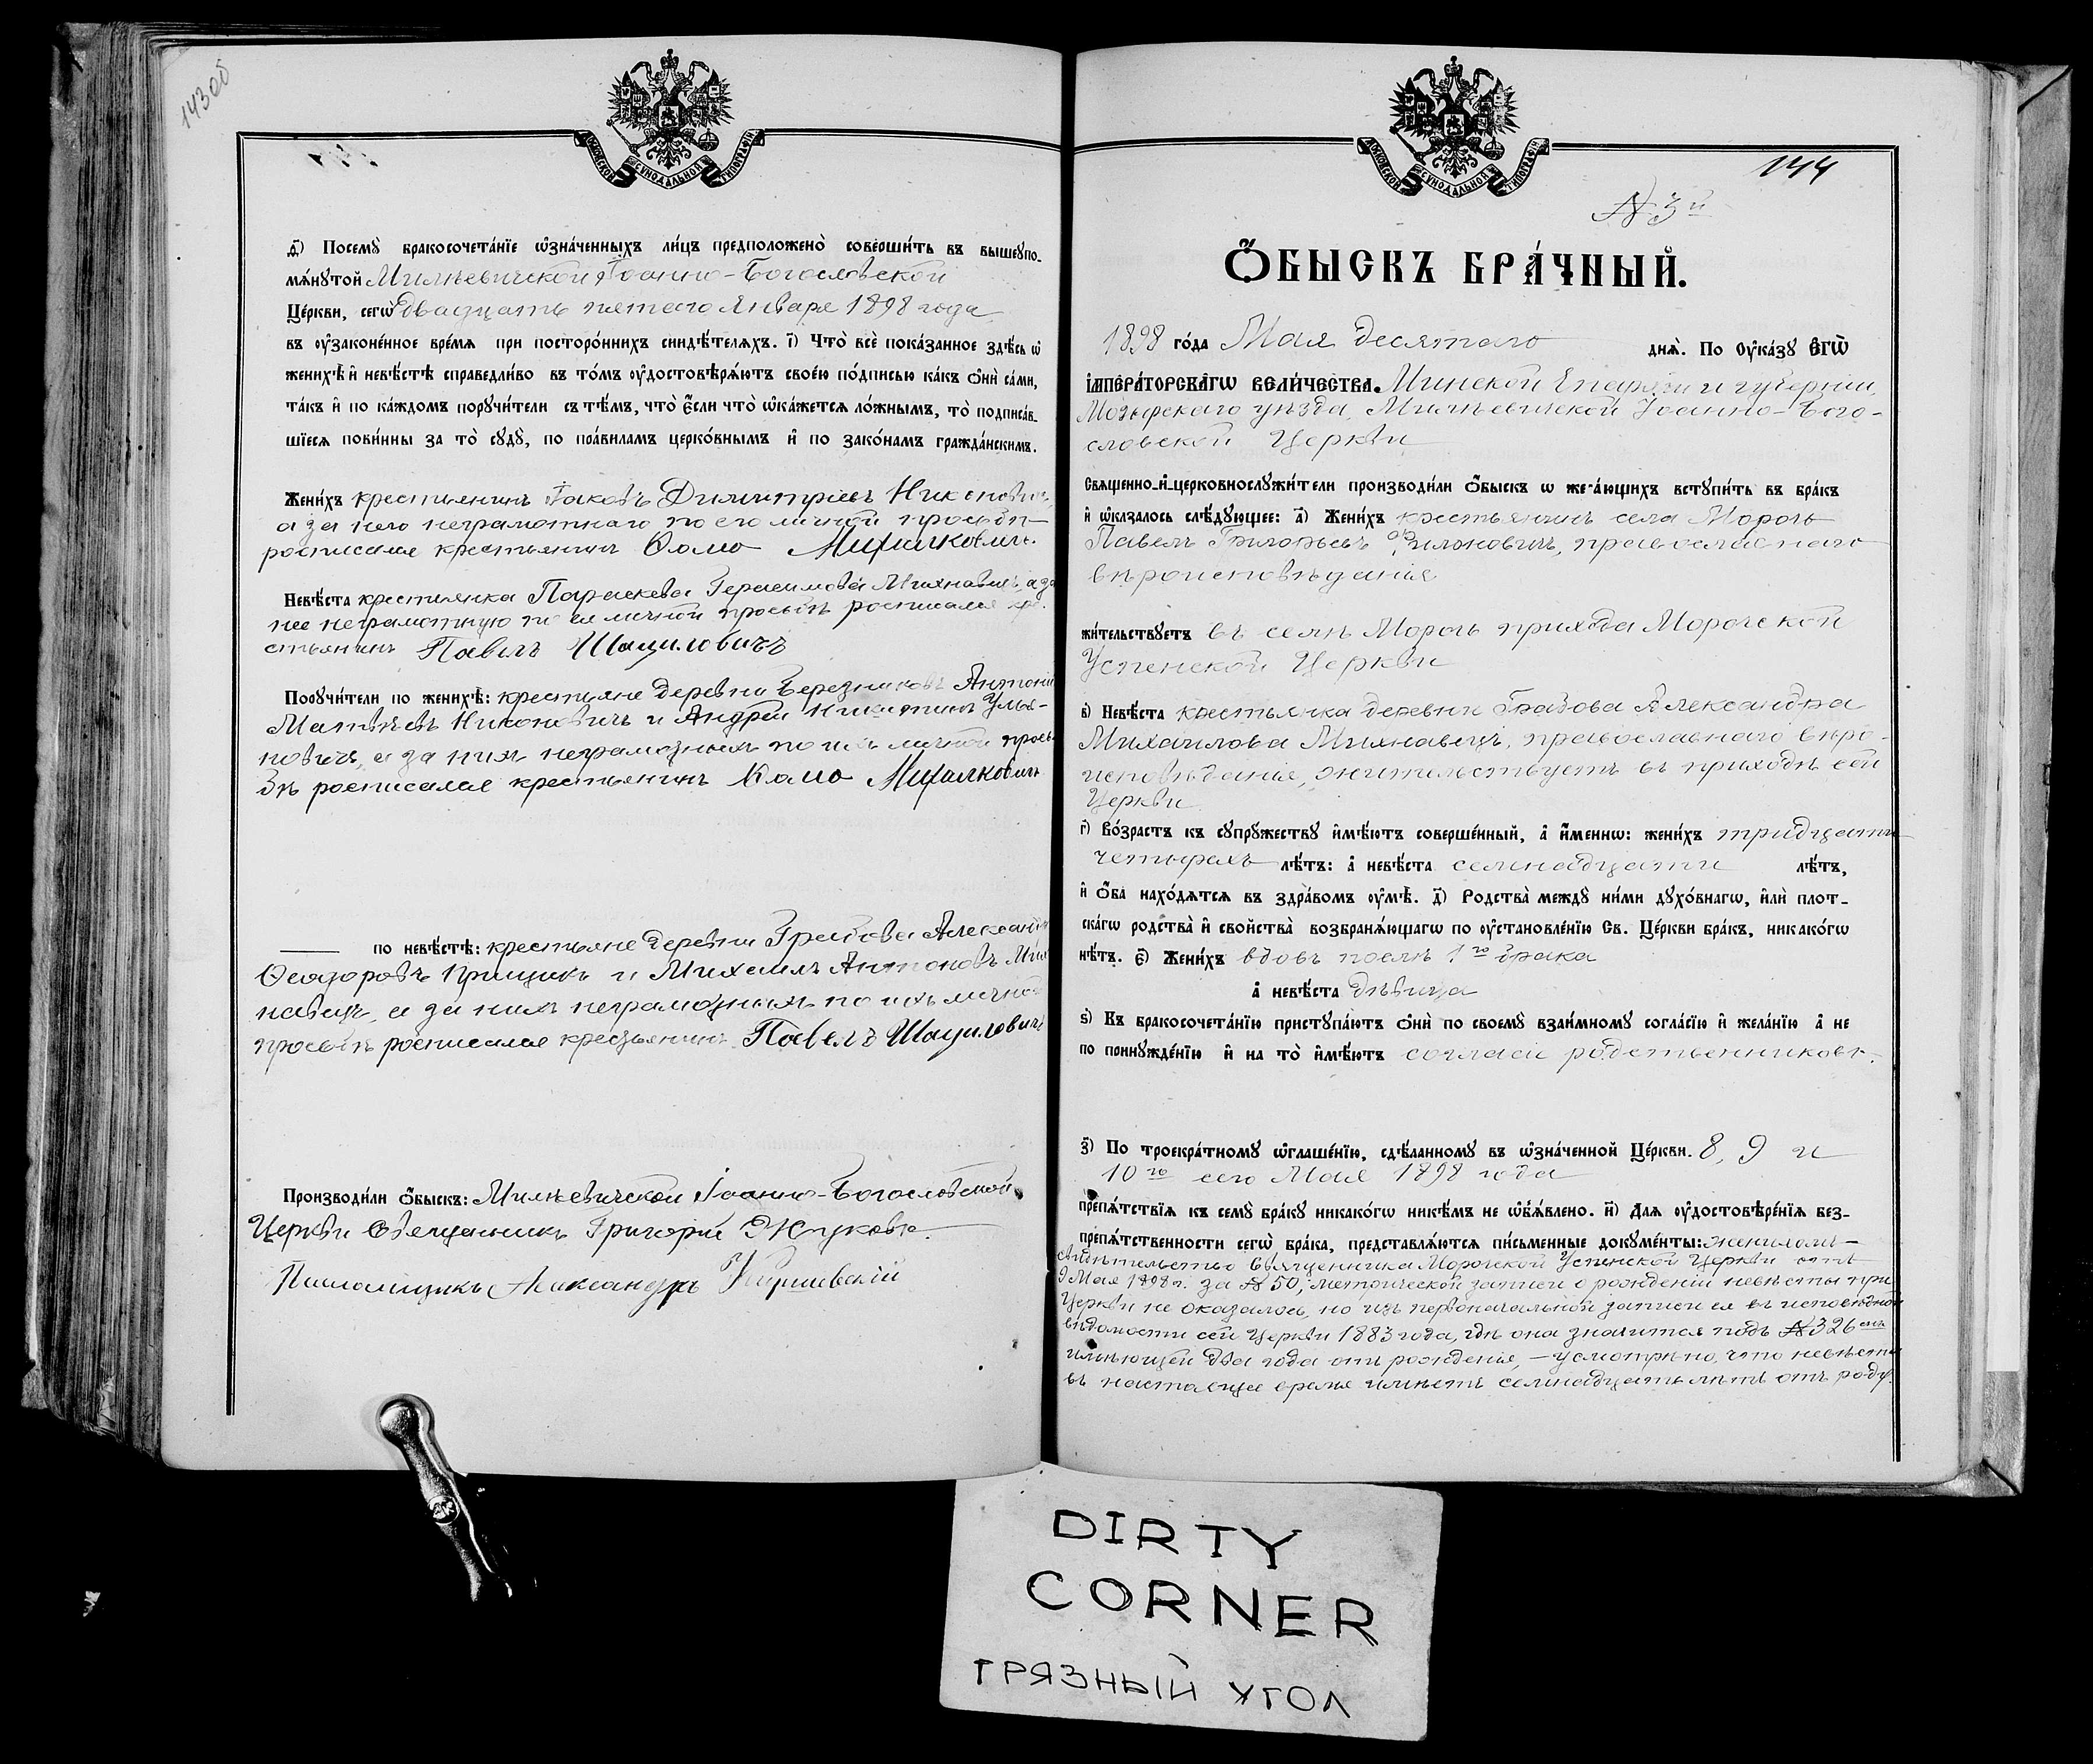 143об
МОСКОВСКОЙ СѴНОДАЛЬНОЙ ТИПОГРАФІИ
д҃) Посемꙋ̀ бракосочета́нїе ѡ҆зна́ченныхъ ли́цъ предположено̀ соверши́ть въ вышеꙋпо-
мѧ́нꙋтой Милѣевичской Іоанно-Богословской
Це́ркви, сегѡ̀ двадцать пятаго Января 1898 года
въ ᲂу҆законе́нное вре́мѧ при посторо́ннихъ свидѣ́телѧхъ. і҃) Что̀ всѐ пока́занное здѣ́сь ѡ҆
женихѣ̀ и҆ невѣ́стѣ справедли́во въ то́мъ ᲂу҆достовѣрѧ́ютъ свое́ю по́дписью ка́къ ѻ҆нѝ са́ми,
та́къ и҆ по ка́ждомъ порꙋчи́тели съ тѣ́мъ, что̀ є҆́сли что̀ ѡ҆ка́жетсѧ ло́жнымъ, то̀ подписа́в-
шїесѧ пови́нны за то̀ сꙋдꙋ̀, по пра́виламъ церко́внымъ и҆ по зако́намъ гражда́нскимъ.
Жени́хъ крестьянинъ Іаковъ Димитріевъ
а за него неграмотнаго по его личной просьбѣ
росписался крестьянинъ Ѳома Михалковичъ.
Невѣ́ста крестьянка Параскева Герасимова Михнавецъ, а за
нее неграмотную по ея личной просьбѣ росписался кре-
стьянинъ Павелъ Шациловичъ
Порꙋчи́тели по женихѣ̀: крестьяне деревни Березняковъ Антоній
Матвѣевъ Никоновичъ и Андрей Никитинъ Улья-
новичъ, а за нихъ неграмотныхъ по ихъ личной прось-
бѣ росписался крестьянинъ Ѳома Михалковичъ
по невѣ́стѣ: крестьяне деревни Грабова
Ѳеодоровъ Прищикъ и Михаилъ Антоновъ Мих
навецъ, а за нихъ неграмотныхъ по ихъ личной
просьбѣ росписался крестьянинъ Павелъ Шацилович
Производи́ли ѻ҆́быскъ: Милѣевичской Іоанно-Богословской
Церкви Священникъ Григорій Жуковъ
Псаломщикъ Александръ
МОСКОВСКОЙ СѴНОДАЛЬНОЙ ТИПОГРАФІИ
144
№ 3й
Ѻ҆́БЫСКЪ БРА́ЧНЫЙ.
1898 го́да Мая десятаго днѧ̀. По Оу҆ка́зꙋ Є҆ГѠ̀
І҆МПЕРА́ТОРСКАГѠ ВЕЛИ́ЧЕСТВА. Минской Епархіи и губерніи,
Мозырскаго уѣзда, Милѣевичской Іоанно-Бого-
словской Церкви
Сващенно-и҆-церковнослꙋжи́тели производи́ли ѻ҆́быскъ ѡ жела́ющихъ встꙋпи́ть въ бра́къ
и҆ ѡ҆казалось слѣ́дꙋющее: а҃) Жени́хъ крестьянинъ села Морочь
Павелъ Григорьевъ православнаго
вѣроисповѣданія
жи́тельствꙋетъ въ селѣ Морочь прихода Морочской
Успенской Церкви
в҃) Невѣ́ста крестьянка деревни Грабова Александра
Михаилова Михнавецъ, православнаго вѣро-
исповѣданія, жительствуетъ въ приходѣ сей
Церкви
г҃) Во́зрастъ къ сꙋпрꙋ́жествꙋ и҆мѣ́ютъ соверше́нный, а҆ и҆́меннѡ: жени́хъ тридцати
четырехъ лѣ́тъ: а҆ невѣ́ста семнадцати лѣ́тъ,
и҆ ѻ҆́ба нахо́дѧтсѧ въ здра́вомъ ᲂу҆мѣ̀. д҃) Родства̀ междꙋ̀ ни́ми дꙋхо́внагѡ, и҆лѝ плот-
ска́гѡ родства̀ и҆ свойства̀ возбранѧ́ющагѡ по ᲂу҆становле́нїю Св. Це́ркви бра́къ, никако́гѡ
нѣ́тъ. є҃) Жени́хъ вдовъ послѣ 1го брака
а҆ невѣ́ста дѣвица
ѕ҃) Къ бракосочета́нїю пристꙋпа́ютъ ѻ҆нѝ по своемꙋ̀ взаи́мномꙋ согла́сїю и҆ жела́нїю а҆ не
по принꙋжде́нїю и҆ на то̀ и҆мѣ́ютъ согласіе родственниковъ.
з҃) По троекра́тномꙋ ѡ҆глаше́нїю, сдѣ́ланномꙋ въ ѡ҆зна́ченной Це́ркви. 8, 9 и
10го сего Мая 1898 года
препѧ́тствїѧ къ семꙋ̀ бра́кꙋ никако́гѡ никѣ́мъ не ѡ҆б̾ѧ́влено. и҃) Длѧ ᲂу҆достовѣре́нїѧ без-
препѧ́тственности сегѡ̀ бра́ка, представлѧ́ютсѧ пи́сьменные докꙋме́нты:
свидѣтельство Священника Морочской Успенской Церкви отъ
9 Мая 1898 г. за № 50, метрической записи о рожденіи невѣсты при
Церкви не оказалось, но изъ первоначальной записи ея въ исповѣдной
вѣдомости сей Церкви 1883 года, гдѣ она значится подъ № 326
имѣющей два года отъ рожденія, – усмотрѣно, что невѣста
въ настоящее время имѣетъ семнадцать лѣтъ отъ роду.
DIRTY
CORNER
ГРЯЗНЫЙ УГОЛ